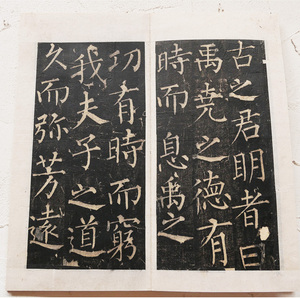 古之君明者曰
禹堯之德有
時而息禹之
功有時而窮
我夫子之道
久而弥芳遠